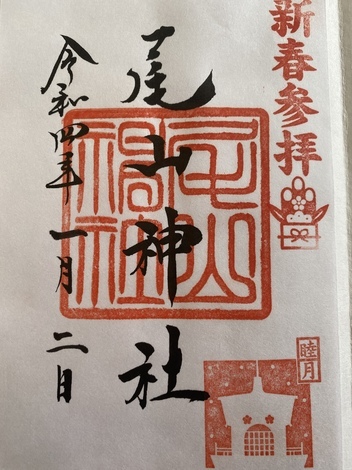 新春参拝
尾山神社
令和四年一月二日
睦月
尾山神社